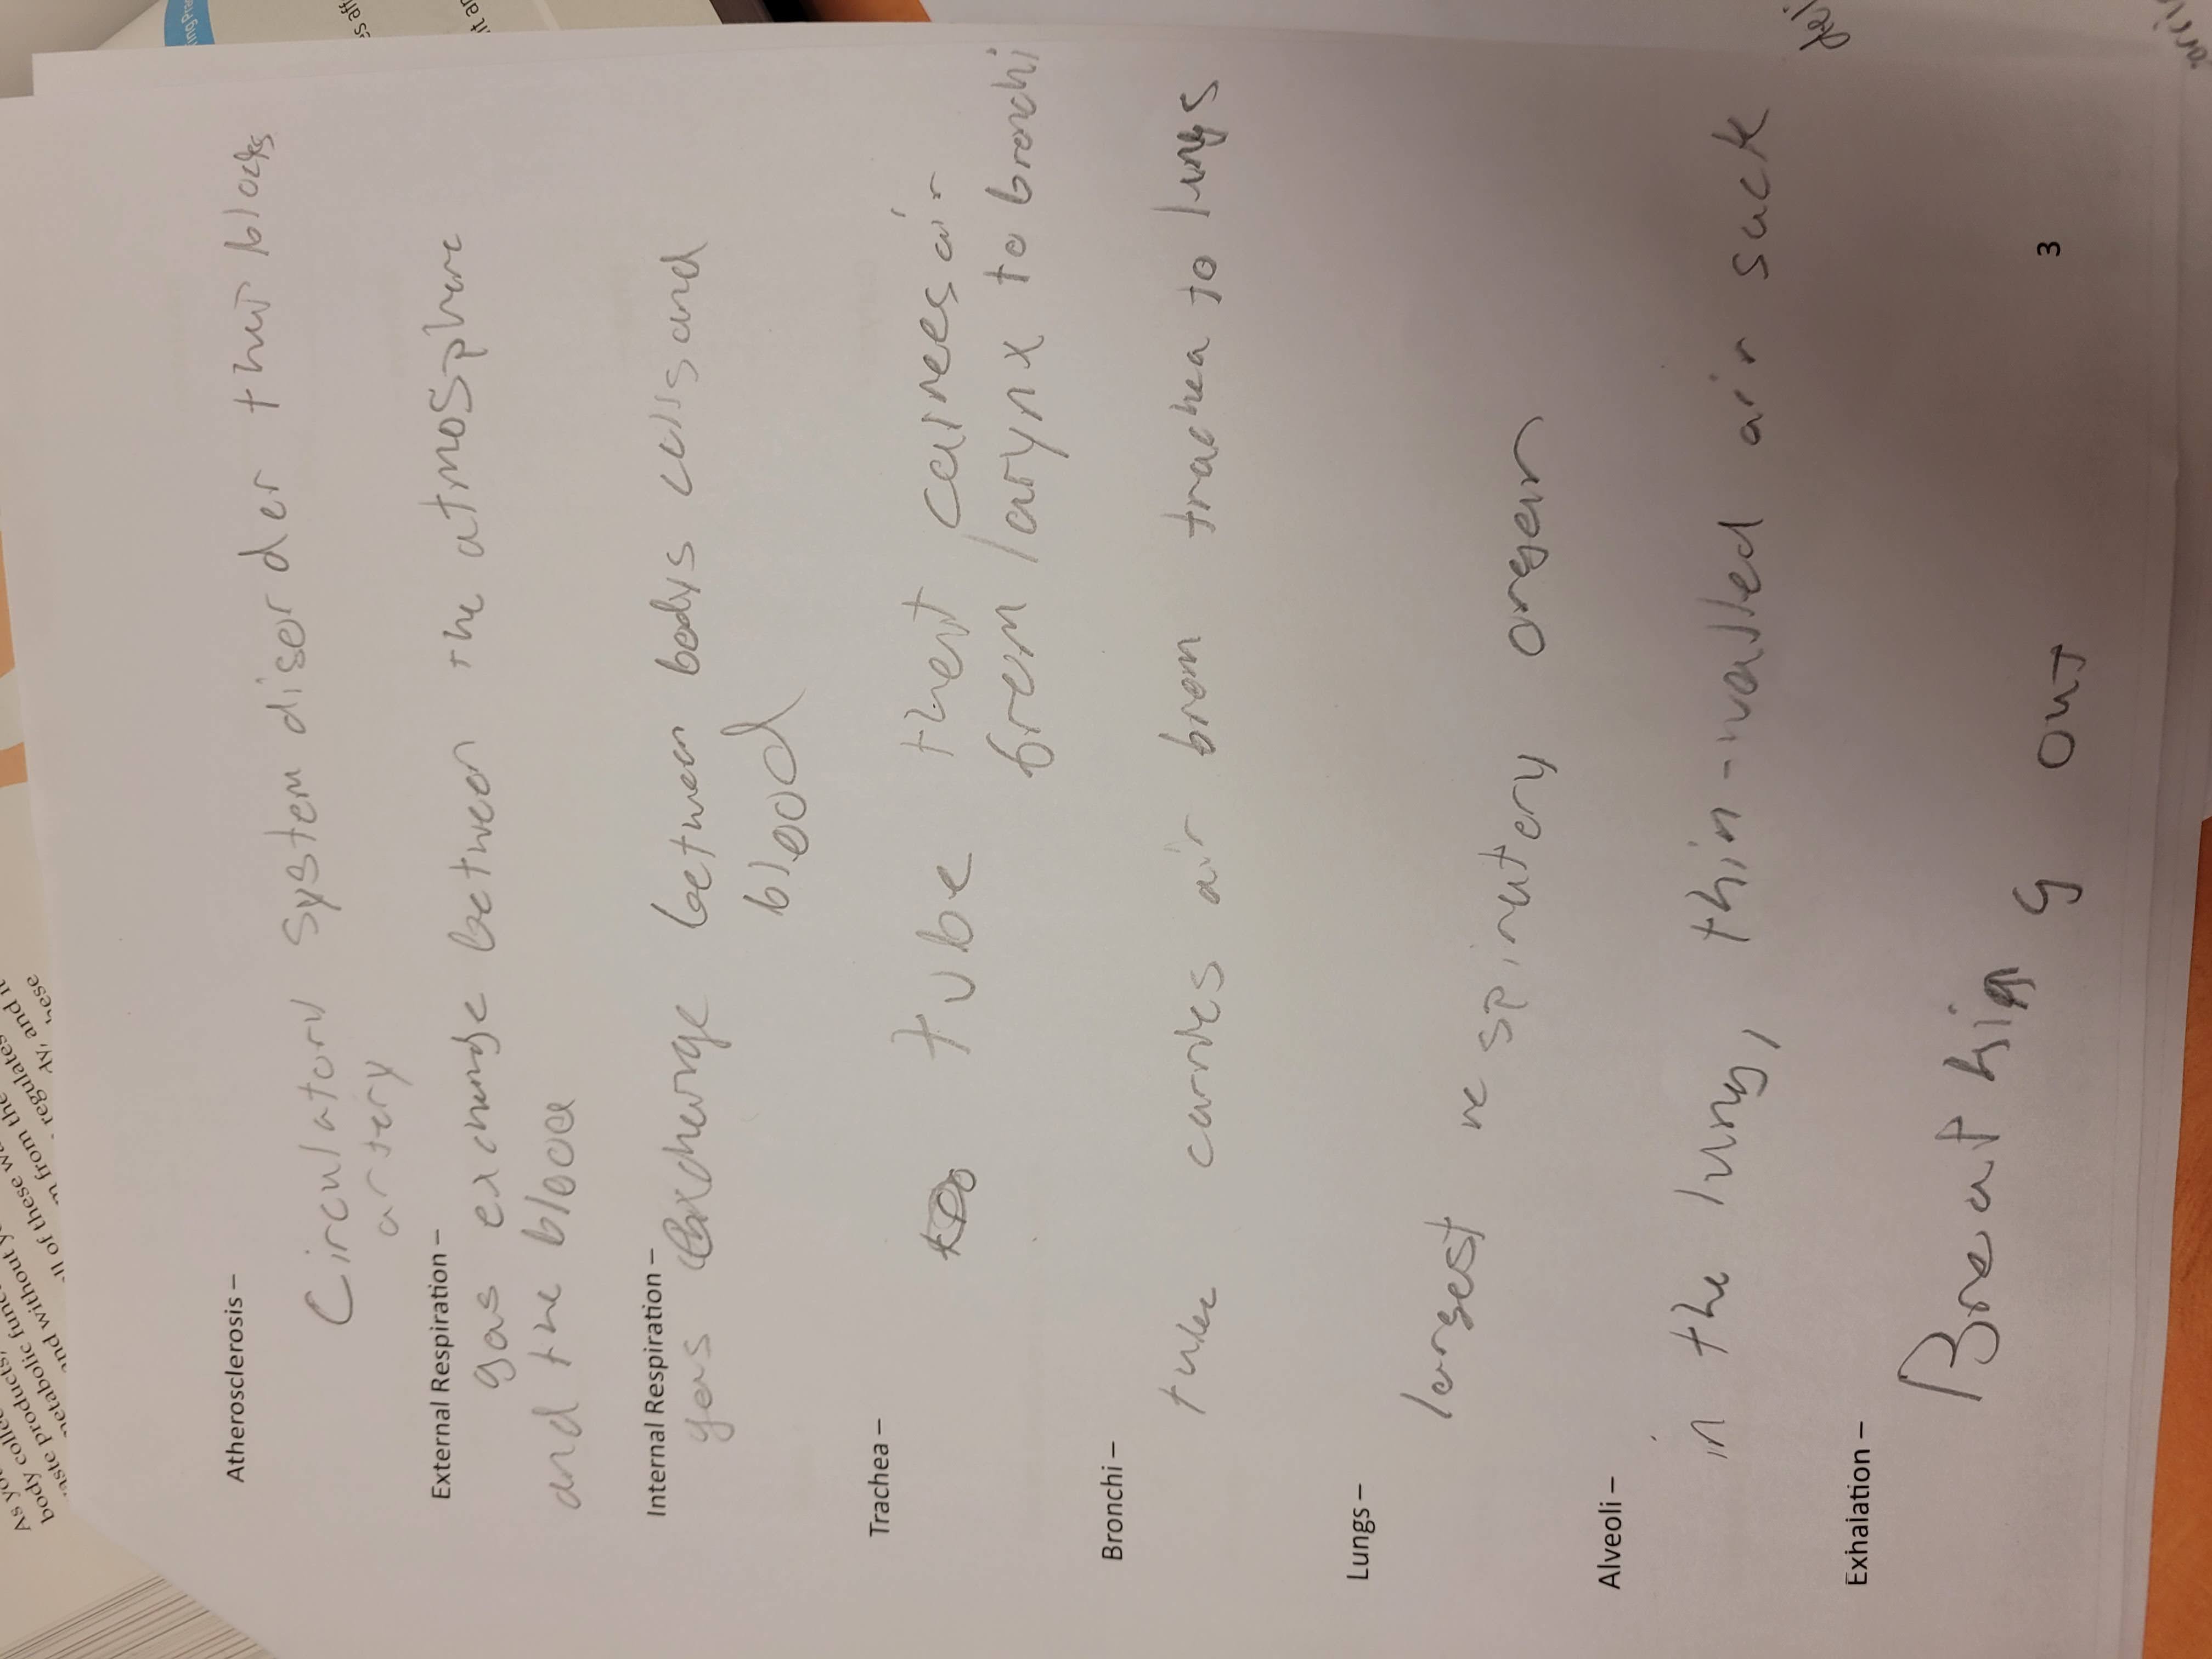 Atherosclerosis –
Circulatory system disorder that blocks
artery
External Respiration –
gas exchange between the atmosphere
and the blood
Internal Respiration –
gas exchange between bodys cells and
blood
Trachea –
tube that carries air
from larynx to bronchi
Bronchi –
tube carries air from trachea to lungs
Lungs –
largest respiratory organ
Alveoli –
in the lung, thin-walled air sack
Exhalation –
Breathing out
3